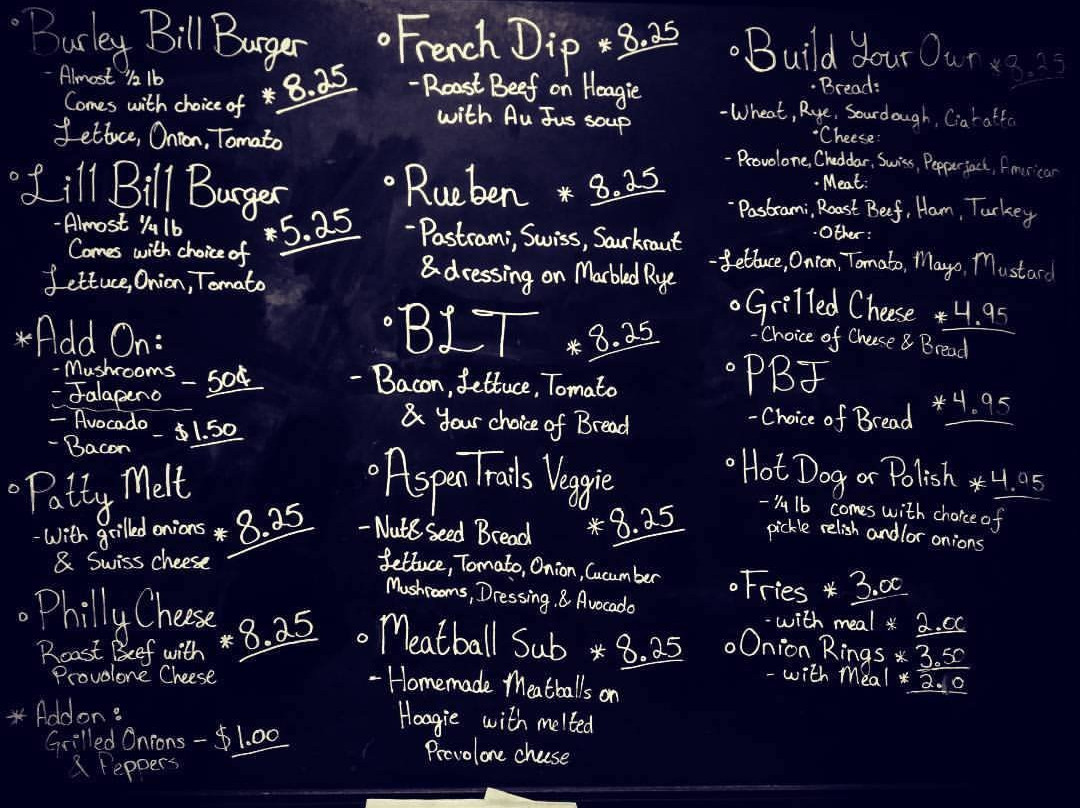 Burley Bill Burger
- Almost 1/2 lb * 8.25
Comes with choice of
Lettuce, Onion, Tomato
Lill Bill Burger
- Almost 1/4 lb * 5.25
Comes with choice of
Lettuce, Onion, Tomato
* Add On:
- Mushrooms
- Jalapeno - 50¢
- Avocado
- Bacon - $1.50
Patty Melt
- With grilled onions * 8.25
& Swiss cheese
Philly Cheese
Roast Beef with * 8.25
Provolone Cheese
* Add on:
Grilled Onions - $1.00
& Peppers
French Dip * 8.25
- Roast Beef on Hoagie
with Au Jus soup
Rueben * 8.25
- Pastrami, Swiss, Saurkraut
& dressing on Marbled Rye
BLT * 8.25
- Bacon, Lettuce, Tomato
& Your choice of Bread
Aspen Trails Veggie
- Nut & Seed Bread * 8.25
Lettuce, Tomato, Onion, Cucumber
Mushrooms, Dressing, & Avocado
Meatball Sub * 8.25
- Homemade Meatballs on
Hoagie with melted
Provolone cheese
Build Your Own * 8.25
• Bread:
- Wheat, Rye, Sourdough, Ciabatta
• Cheese:
- Provolone, Cheddar, Swiss, Pepperjack, American
• Meat:
- Pastrami, Roast Beef, Ham, Turkey
• Other:
- Lettuce, Onion, Tomato, Mayo, Mustard
Grilled Cheese * 4.95
- Choice of Cheese & Bread
PBJ
- Choice of Bread * 4.95
Hot Dog or Polish * 4.95
- 1/4 lb comes with choice of
pickle relish and/or onions
Fries * 3.00
- with meal * 2.00
Onion Rings * 3.50
- with Meal *